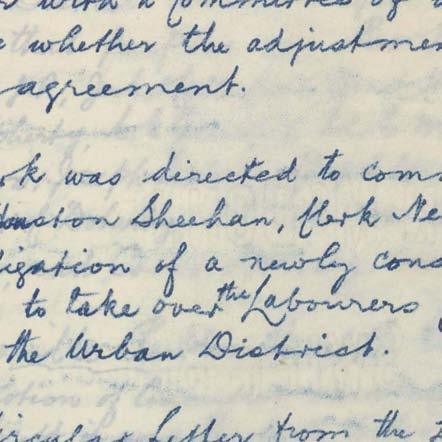 with a Committee of
whether the adjustmen
agreement.
rk was directed to com
Houston Sheehan, Clerk Ne
ligation of a newly cons
to take over the Labourers
the Urban District.
circular letter from the